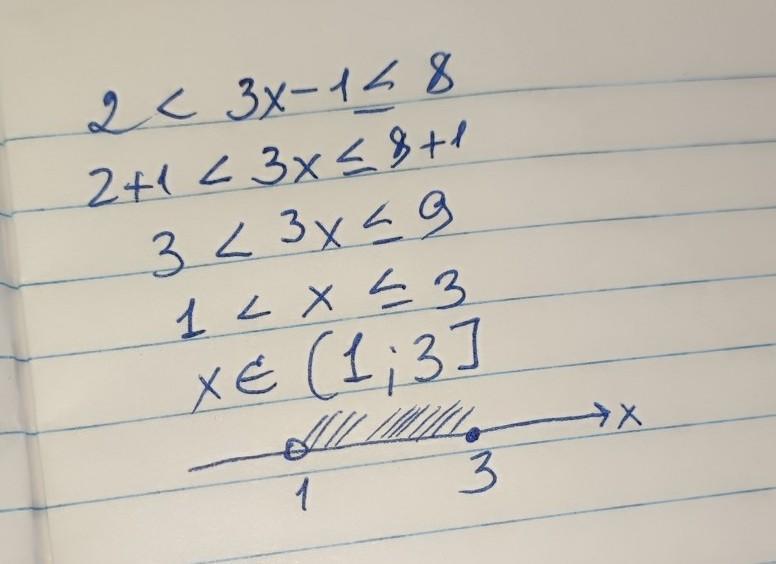 2 < 3x-1 ≤ 8
2+1 < 3x ≤ 8+1
3 < 3x ≤ 9
1 < x ≤ 3
x ∈ (1;3]
x
1 3